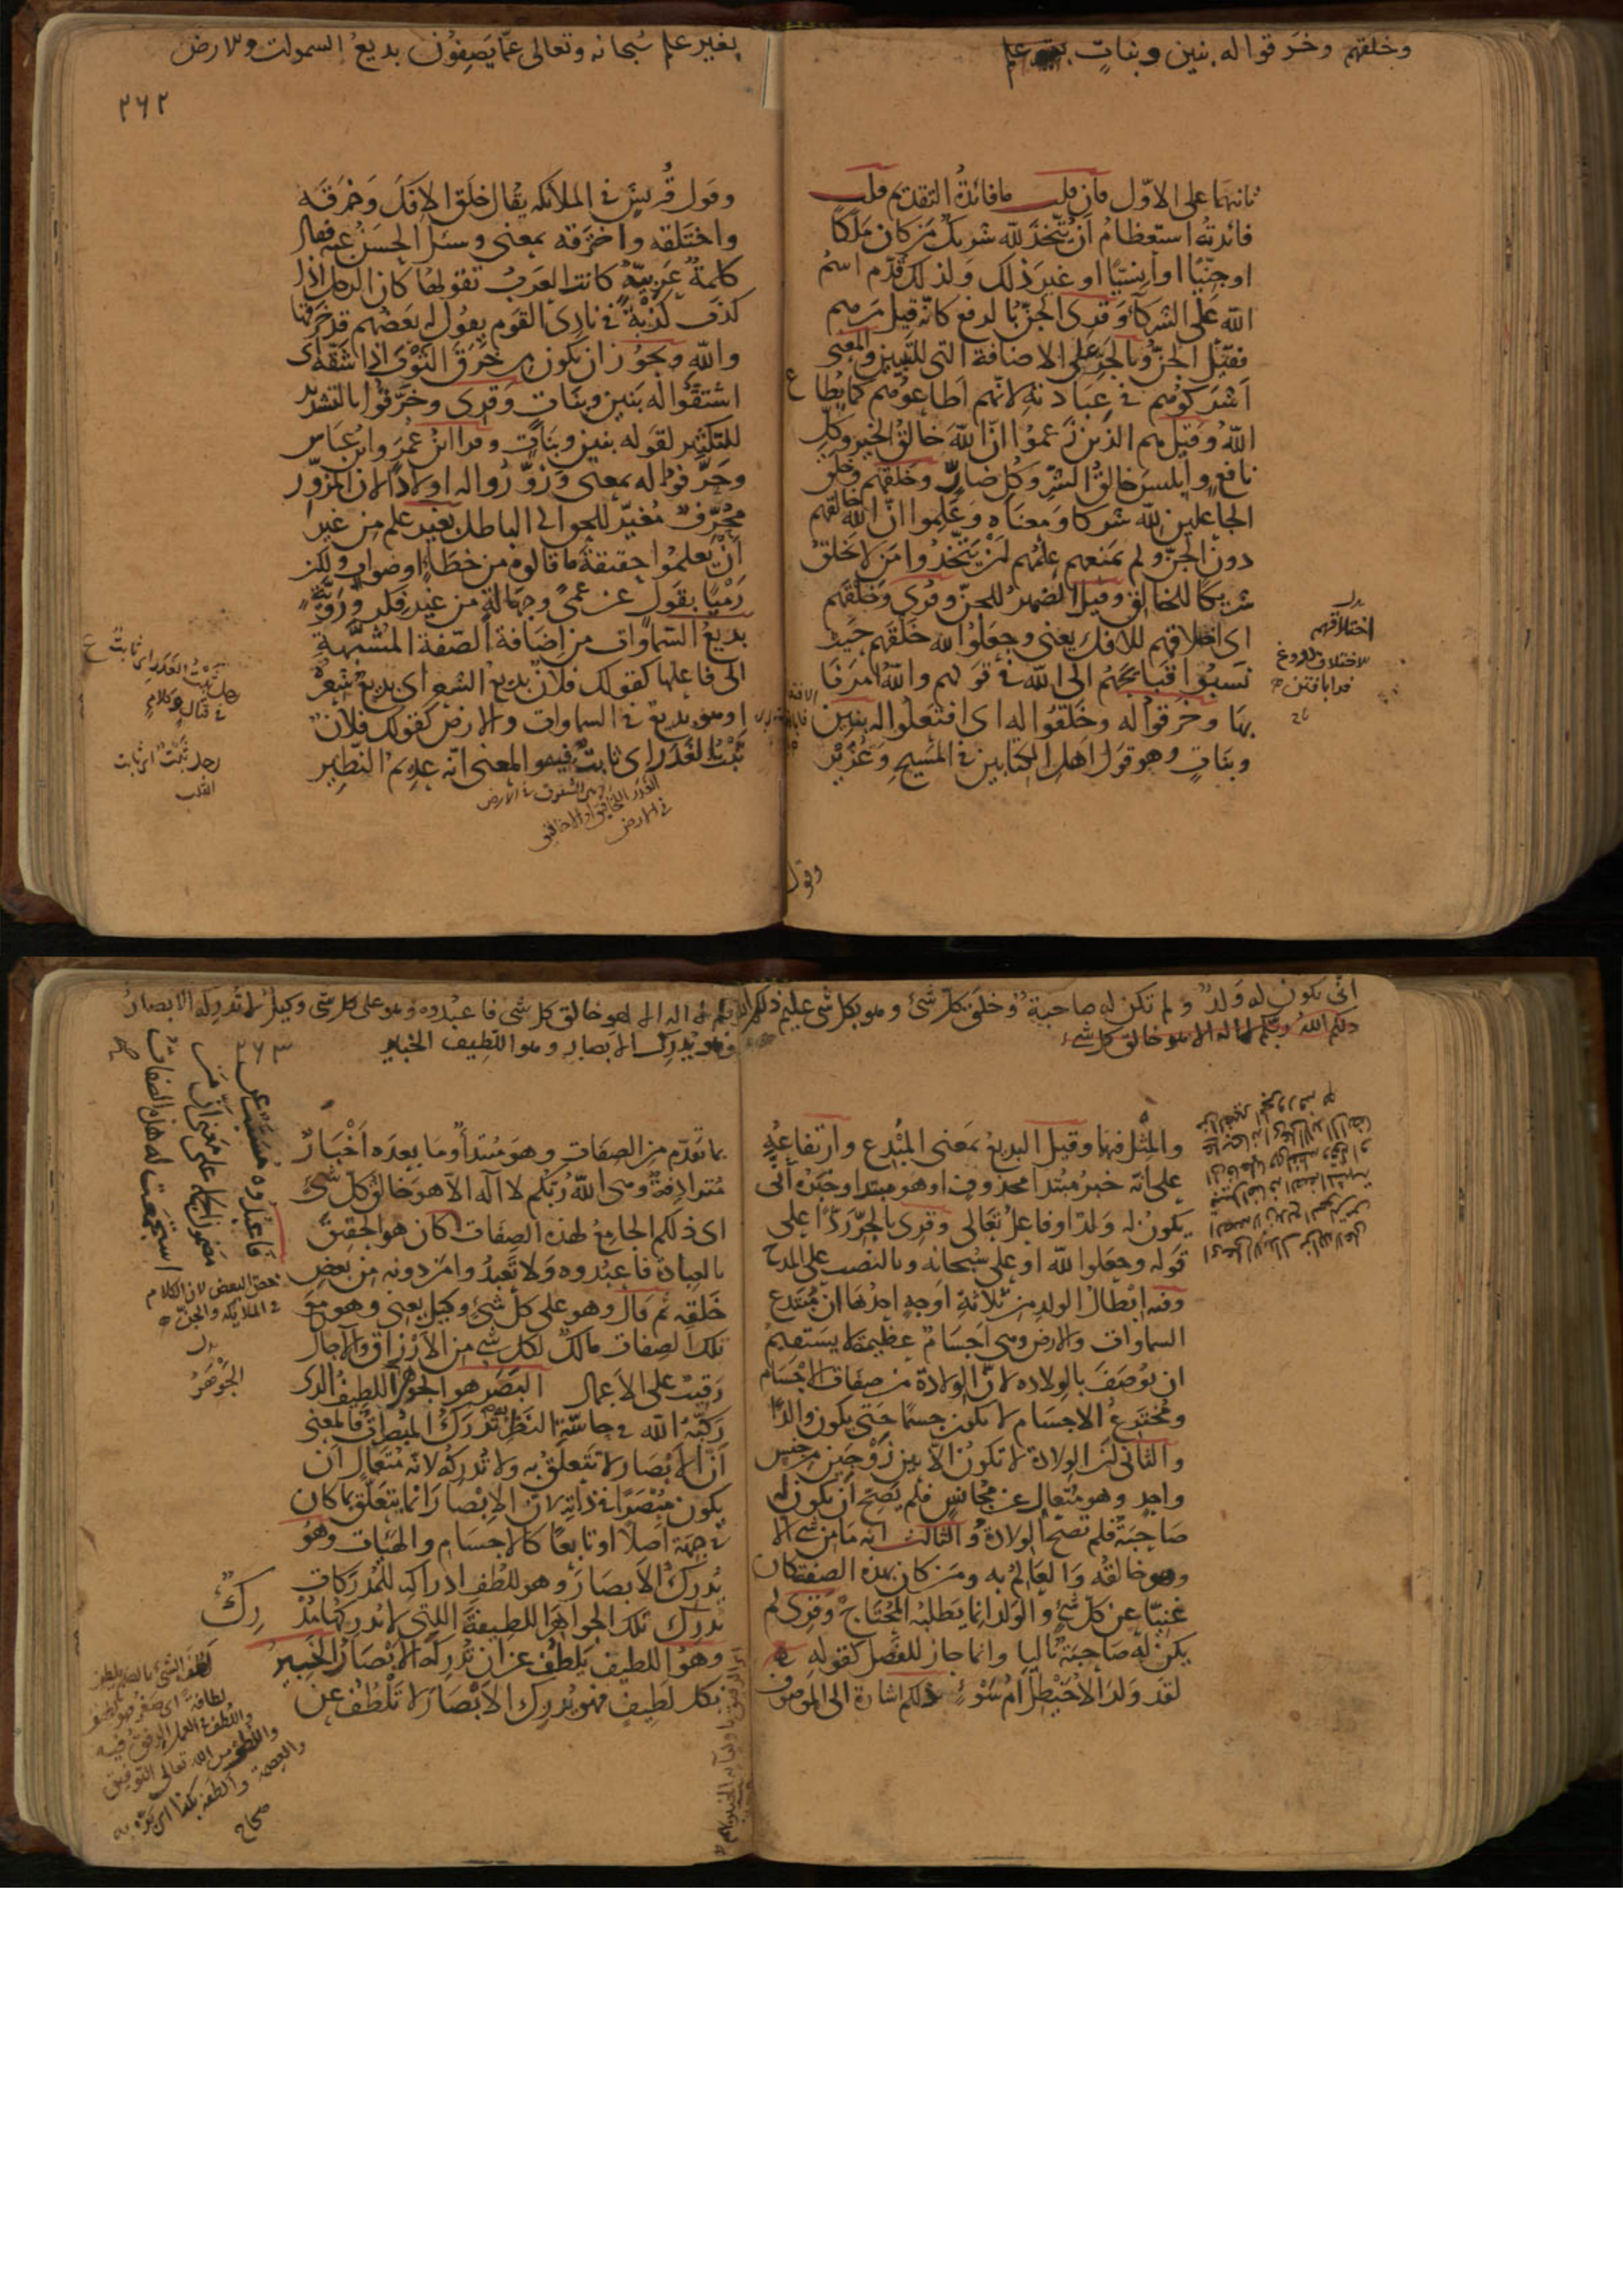 وخلقهم وخرقوا له بنين وبنات
ثانيهما على الاوّل فان قلت ما فائدة التقديم قلت
فائدته استعظام أن يُتّخذ لله شريك من كان مَلَكًا
او جنّيًا او إنسيًا او غير ذلك ولذلك قُدّم اسمُ
الله على الشركآء وقرئ الجنّ بالرفع كانه قيل من هم
فقيل الجنّ وبالجرّ على الاضافة التى للتبيين والمعنى
أشركوهم فى عبادته لانهم أطاعوهم كما يُطاع
اللهُ وقيل هم الذين زعموا انّ الله خالق الخير وكلّ
نافع وابليس خالق الشرّ وكل ضارّ وخلقهم وخلق
الجاعلين لله شركا ومعناه وعلموا انّ الله خالقهم
دون الجنّ ولم يمنعهم علمهم أن يتّخذوا من لا يخلق
شريكًا للخالق وقيل الضمير للجنّ وقرئ وخلْقهم
اى اختلاقهم للافك يعنى وجعلوا لله خلقهم حيث
نسبوا قبائحهم الى الله فى قولهم والله امرنا
بها وخرقوا له وخلقوا له اى افتعلوا له بنين
وبنات وهو قول اهل الكتابين فى المسيح وعُزَيْر
بدل
اختلاقهم
وقول
بغير علم سُبحانه وتعالى عمّا يَصِفُون بديعُ السموات والارض
٢٦٢
وقول قُريش فى الملائكه يقال خلق الافك وخرقه
واختلقه واخترقه بمعنى وسئل الحسن عنه فقال
كلمةٌ عربيّةٌ كانت العرب تقولها كان الرجل اذا
كذب كذبةً فى نادى القوم يقول له بعضهم قد خرقها
والله ويجوز ان يكون من خرق الثوب اذا شقّه اى
اشتقّوا له بنين وبنات وقرئ وخرّقوا بالتشديد
للتكثير لقوله بنين وبنات وقرا ابن عُمر وابن عباس
وحرّفوا له بمعنى وزوّروا له اولادًا لان المزوّر
محرّف مُغيّر للحق الى الباطل بغير علم من غير
أن يعلموا حقيقة ما قالوه من خطاءٍ او صواب ولكن
رميًا بقول عن عمًى وجهالة من غير فكر ورويّة
بديع السماوات من اضافة الصفة المشبّهة
الى فاعلها كقولك فلان بديع الشعر اى بديع شعره
او هو بديع فى السماوات والارض كقولك فلان
ثَبْت الغَدَر اى ثابتٌ فيه والمعنى انه عديم النظير
رجل ثبت الغدر اى ثابت
فى قتال وكلام
رجل ثبت اى ثابت
القلب
أنّى يكون له ولدٌ ولم تكن له صاحبةٌ وخلق كلّ شىء وهو بكل شى عليم
ذلكم اللهُ ربّكم لا اله الا هو خالق كل شىء
والمثل فيها وقيل البديع بمعنى المُبْدع وارتفاعه
على انه خبر مُبتدا محذوف او هو مبتدا وخبره أنّى
يكون له ولدٌ او فاعل تعالى وقرئ بالجرّ ردًّا على
قوله وجعلوا لله او على سُبحانه وبالنصب على المدح
وفيه ابطال الولد من ثلاثة اوجه احدها ان مُبتدع
السماوات والارض وهى اجسام عظيمة لا يستقيم
ان يُوصف بالولاده لانّ الولادة من صفات الاجسام
ومُخترع الاجسام لا يكون جسمًا حتى يكون والدًا
والثانى انّ الولادة لا تكون الا بين زوجين من جنس
واحد وهو متعالٍ عن مجانس فلم يصح ان يكون له
صاحبة فلم تصح الولادة والثالث انه ما من شى الا
وهو خالقه والعالم به ومن كان بهذه الصفة كان
غنيًا عن كل شىء والولد انما يطلبه المحتاج وقرئ لم
يكن له صاحبة باليا وانما جاز للفصل كقوله
لقد ولد الاخيطل أمُّ سَوْءٍ ذلكم اشارة الى الموصوف
لا اله الا هو خالق كل شى فاعبدوه وهو على كل شى وكيل لا تُدركه الابصارُ
وهو يُدرك الابصار وهو اللطيف الخبير
٢٦٣
بما تقدّم من الصفات وهو مبتدأ وما بعده أخبارٌ
مترادفة وهى اللهُ ربّكم لا اله الا هو خالق كلّ شىء
اى ذلكم الجامع لهذه الصفات كان هو الحقيق
بالعبادة فاعبدوه ولا تعبدوا من دونه من بعض
خلقه ثم قال وهو على كل شىء وكيل يعنى وهو مع
تلك الصفات مالكٌ لكل شى من الارزاق والآجال
رقيب على الاعمال البصر هو الجوهر اللطيف الذى
ركّبه الله فى حاسّة النظر به تُدرك المبصرات فالمعنى
أنّ الابصار لا تتعلّق به ولا تُدركه لانه متعالٍ ان
يكون مُبصَرًا فى ذاته لان الابصار انما يتعلّق بما كان
فى جهة اصلًا او تابعًا كالاجسام والهيآت وهو
يُدرك الابصار وهو للُطف ادراكه للمُدركات
يُدرك تلك الجواهر اللطيفة التى لا يُدركها مُدْرِكٌ
وهو اللطيف يلطف عن ان تُدركه الابصار الخبير
بكل لطيف فهو يُدرك الابصار لا تلطف عن
فاعبدوه مُسبّب عن
مضمون الجملة على معنى أن من
استجمعت له هذه الصفات
خصّ البعض لان الكلام
فى الملايكه والجنّ
بدل
الجَوْهَرُ
لَطُفَ الشىُ بالضم يلطف
لطافةً اى صغر فهو لطيف
واللُطف فى العمل الرفق فيه
واللطف من الله تعالى التوفيق
والعصمة وألطفه بكذا اى بَرّه به
صحاح